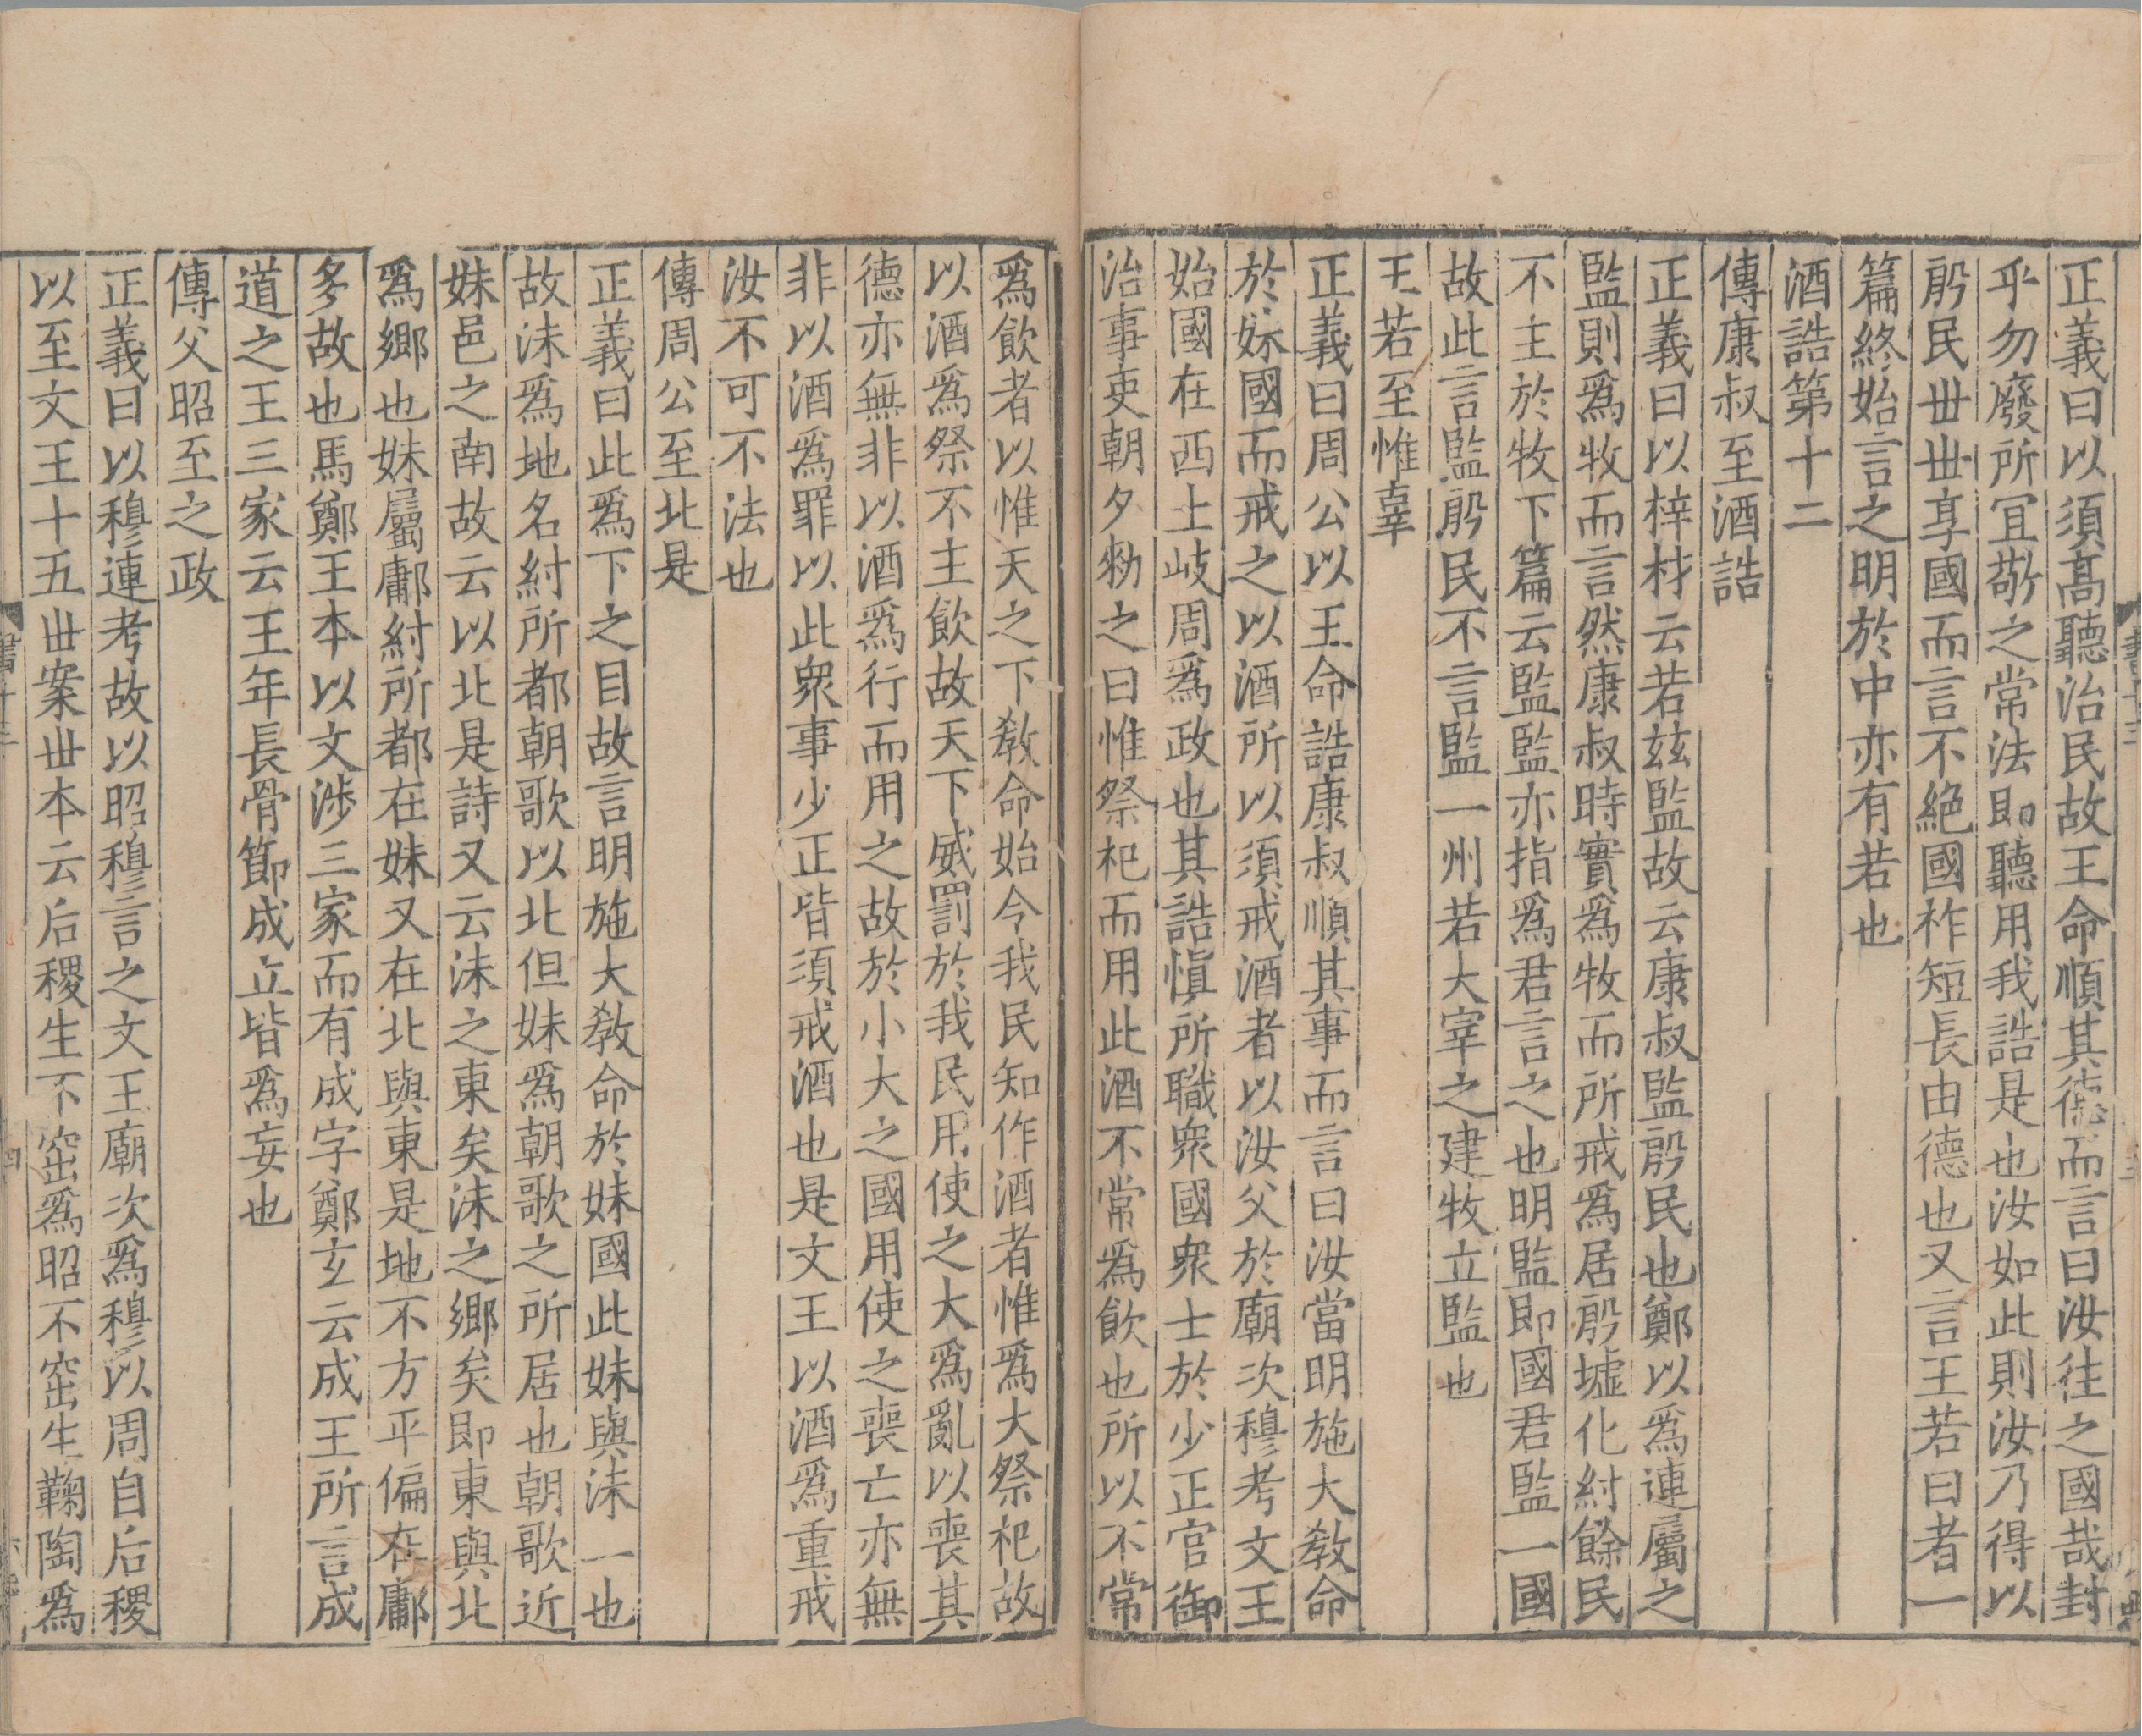 正義曰以須髙聽治民故王命順其德而言曰汝往之國哉封
乎勿廢所宜敬之常法即聽用我誥是也汝如此則汝乃得以
殷民丗丗享國而言不絶國祚短長由德也又言王若曰者一
篇終始言之明於中亦有若也
酒誥第十二
傳康叔至酒誥
正義曰以梓材云若兹監故云康叔監殷民也鄭以爲連屬之
監則爲牧而言然康叔時實爲牧而所戒爲居殷墟化紂餘民
不主於牧下篇云監監亦指爲君言之也明監即國君監一國
故此言監殷民不言監一州若大宰之建牧立監也
王若至惟辜
正義曰周公以王命誥康叔順其事而言曰汝當明施大敎命
於妹國而戒之以酒所以須戒酒者以汝父於廟次穆考文王
始國在西土岐周爲政也其誥愼所職衆國衆士於少正官御
治事吏朝夕勑之曰惟祭祀而用此酒不常爲飲也所以不常
爲飲者以惟天之下敎命始令我民知作酒者惟爲大祭祀故
以酒爲祭不主飲故天下威罰於我民用使之大爲亂以喪其
德亦無非以酒爲行而用之故於小大之國用使之喪亡亦無
非以酒爲罪以此衆事少正皆須戒酒也是文王以酒爲重戒
汝不可不法也
傳周公至北是
正義曰此爲下之目故言明施大敎命於妹國此妹與沬一也
故沬爲地名紂所都朝歌以北但妹爲朝歌之所居也朝歌近
妹邑之南故云以北是詩又云沬之東矣沬之鄉矣即東與北
爲鄉也妹屬鄘紂所都在妹又在北與東是地不方平偏在鄘
多故也馬鄭王本以文涉三家而有成字鄭玄云成王所言成
道之王三家云王年長骨節成立皆爲妄也
傳父昭至之政
正義曰以穆連考故以昭穆言之文王廟次爲穆以周自后稷
以至文王十五丗案丗本云后稷生不窋爲昭不窋生鞠陶爲